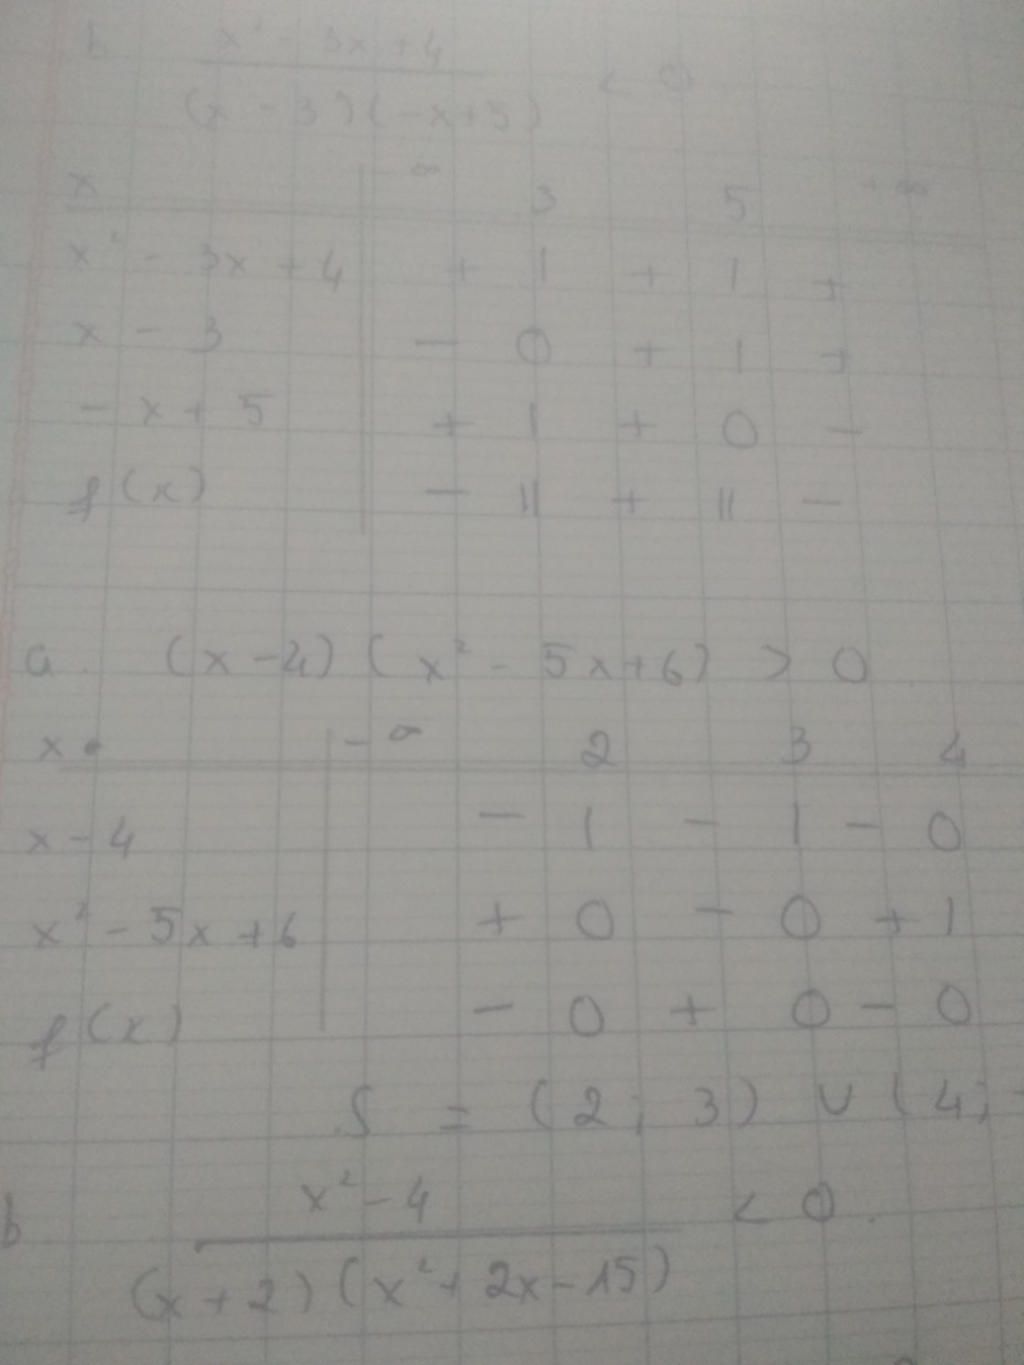 b. x² - 3x + 4
(x - 3)(-x+5) < 0
x -∞ 3 5 +∞
x² - 3x + 4 + | + | +
x - 3 - 0 + | +
- x + 5 + | + 0 -
f(x) - || + || -
a. (x-4)(x² - 5x+6) > 0
x -∞ 2 3 4
x - 4 - | - | - 0
x² - 5x + 6 + 0 - 0 + |
f(x) - 0 + 0 - 0
S = (2; 3) ∪ (4;
b x² - 4 < 0.
(x + 2)(x² + 2x - 15)